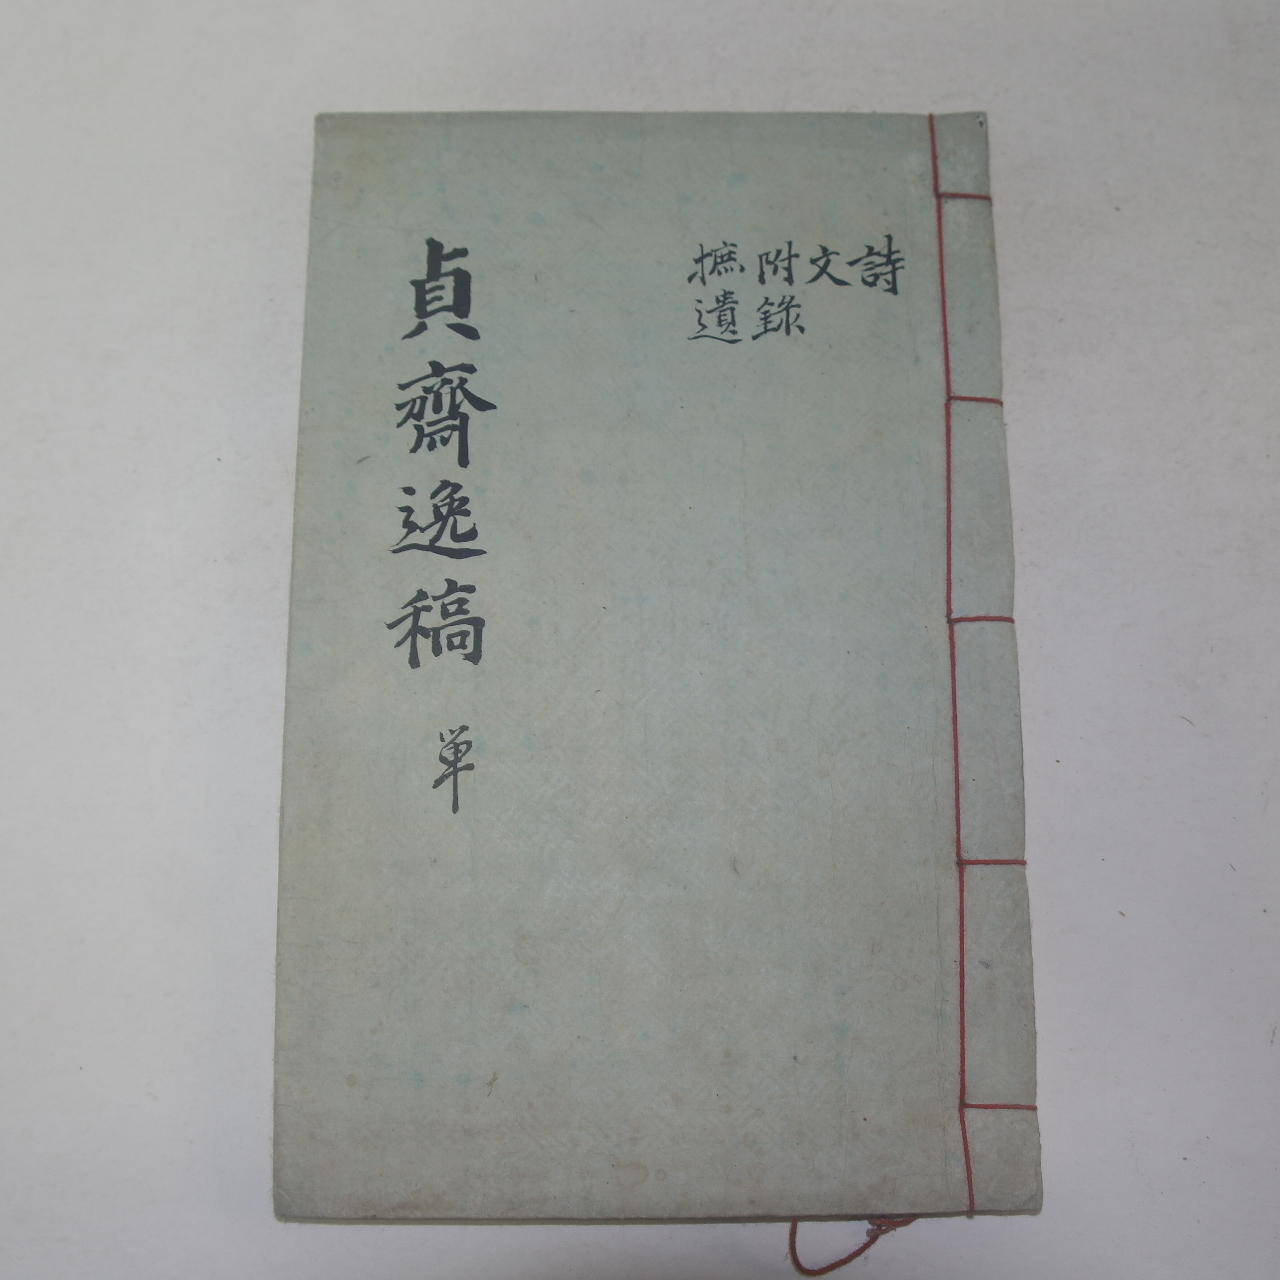 詩
文
附錄
摭遺
貞齋逸稿 単